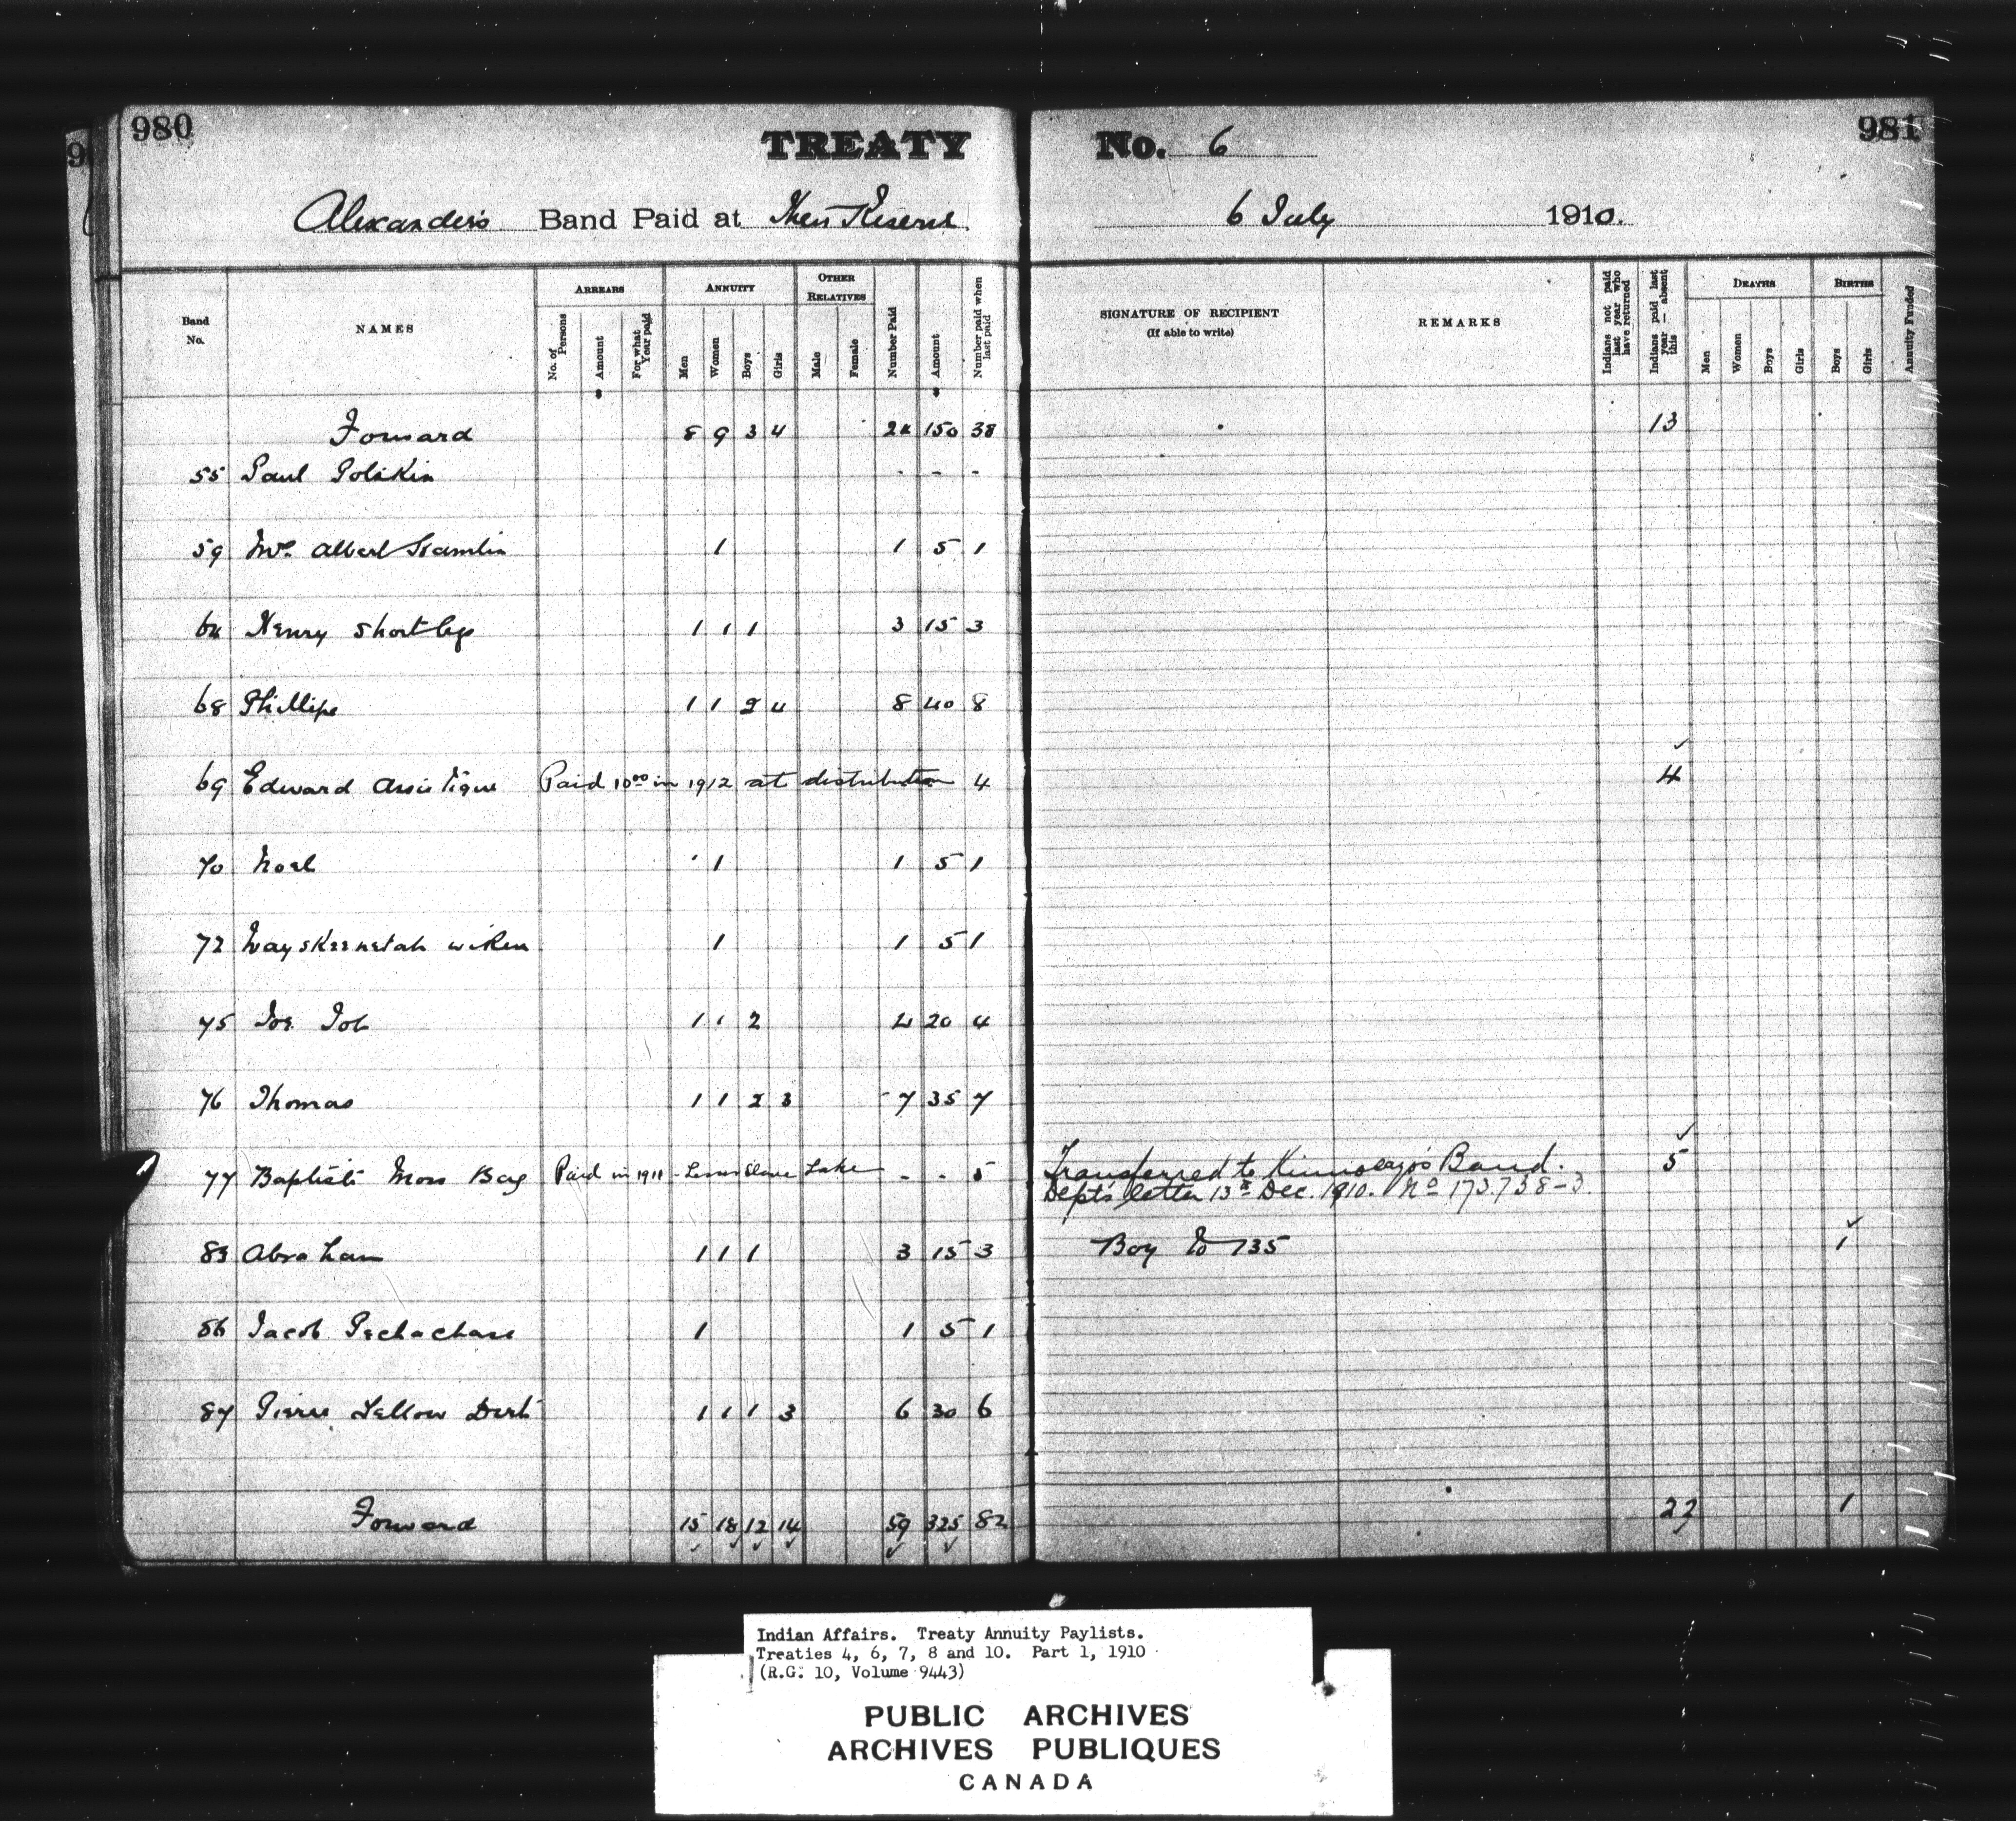 980
TREATY No. 6
981
Alexander's Band Paid at Their Reserve 6 July 1910.
Band No.
NAMES
ARREARS
No. of Persons
Amount
For what Year paid
ANNUITY
Men
Women
Boys
Girls
OTHER RELATIVES
Male
Female
Number Paid
Amount
Number paid when last paid
SIGNATURE OF RECIPIENT
(If able to write)
REMARKS
Indians not paid last year who have returned
Indians paid last year — absent this
DEATHS
Men
Women
Boys
Girls
BIRTHS
Boys
Girls
Annuity Funded
Forward 8 9 3 4 24 150 38 13
55 Paul - - -
59 Mrs. Albert Hamlin 1 1 5 1
64 Henry Shortlegs 1 1 1 3 15 3
68 Phillips 1 1 2 4 8 40 8
69 Edward Paid 10.00 in 1912 at distribution 4 4
70 Noel 1 1 5 1
72 1 1 5 1
75 Joe Job 1 1 2 4 20 4
76 Thomas 1 1 2 3 7 35 7
77 Baptiste Moss Bag Paid in 1911 - Lesser Slave Lake - - 5 Transferred to Kinnosayo's Band. 5
Dept's letter 13th Dec. 1910. No 173738-3.
83 Abraham 1 1 1 3 15 3 Boy to 135 1
86 Jacob 1 1 5 1
87 Pierre Yellow Dirt 1 1 1 3 6 30 6
Forward 15 18 12 14 59 325 82 22 1
Indian Affairs. Treaty Annuity Paylists.
Treaties 4, 6, 7, 8 and 10. Part 1, 1910
(R.G. 10, Volume 9443)
PUBLIC ARCHIVES
ARCHIVES PUBLIQUES
CANADA